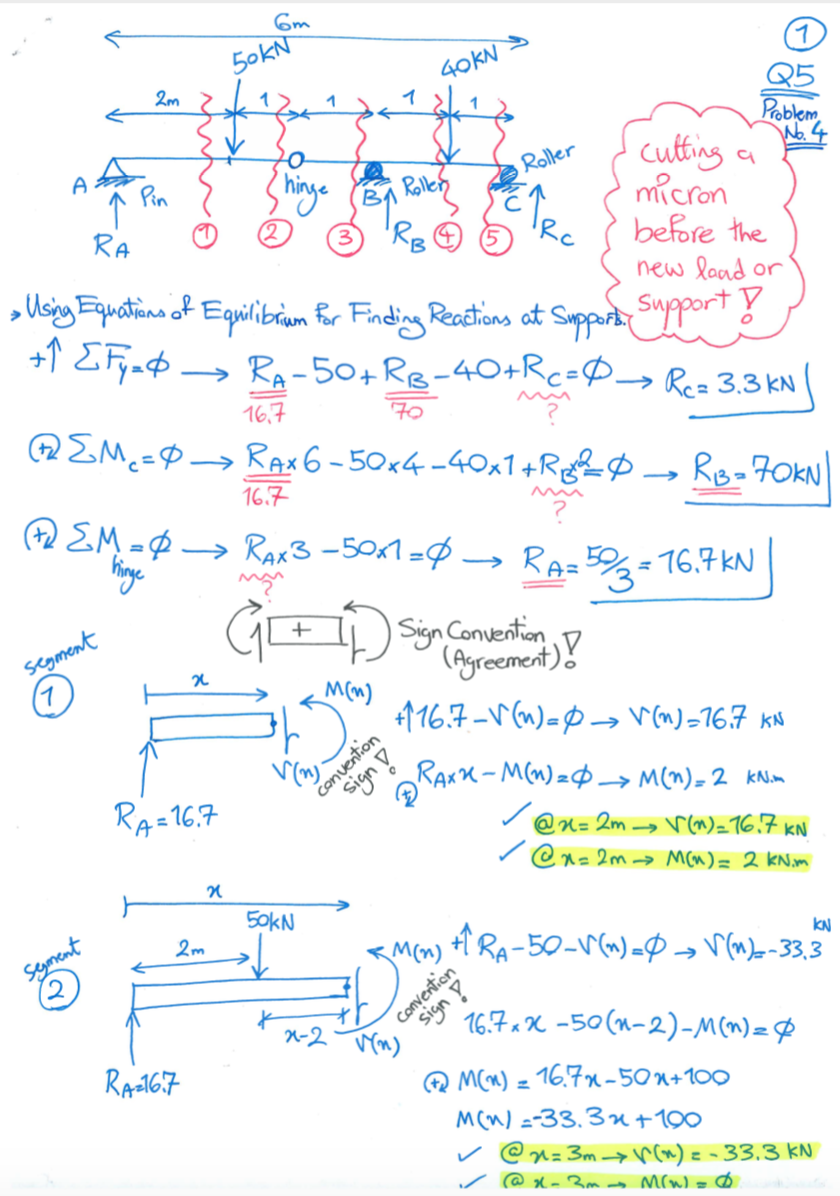 6m
①
50kN
40kN
Q5
Problem No. 4
2m 1 1 1 1
cutting a
micron
before the
new load or
support!
A Pin hinge B Roller C Roller
RA ① ② ③ RB ④ ⑤ RC
→ Using Equations of Equilibrium for Finding Reactions at Supports.
+↑ ΣFy=ϕ → RA-50+RB-40+RC=ϕ → RC=3.3kN
16.7 70 ?
(+↻) ΣMc=ϕ → RA×6-50×4-40×1+RB×2=ϕ → RB=70kN
16.7 ?
(+↻) ΣM hinge=ϕ → RA×3-50×1=ϕ → RA=50/3=16.7kN
?
+ Sign Convention
(Agreement)!
segment
①
x
M(x)
V(x)
convention sign!
RA=16.7
+↑16.7-V(x)=ϕ → V(x)=16.7 kN
(+↻) RA×x-M(x)=ϕ → M(x)=2 kN.m
✓ @x=2m → V(x)=16.7 kN
✓ @x=2m → M(x)=2 kN.m
segment
②
x
50kN
2m
x-2
M(x)
V(x)
convention sign!
RA=16.7
+↑ RA-50-V(x)=ϕ → V(x)=-33.3 kN
16.7×x-50(x-2)-M(x)=ϕ
(+↻) M(x)=16.7x-50x+100
M(x)=-33.3x+100
✓ @x=3m → V(x)=-33.3 kN
✓ @x=3m → M(x)=ϕ